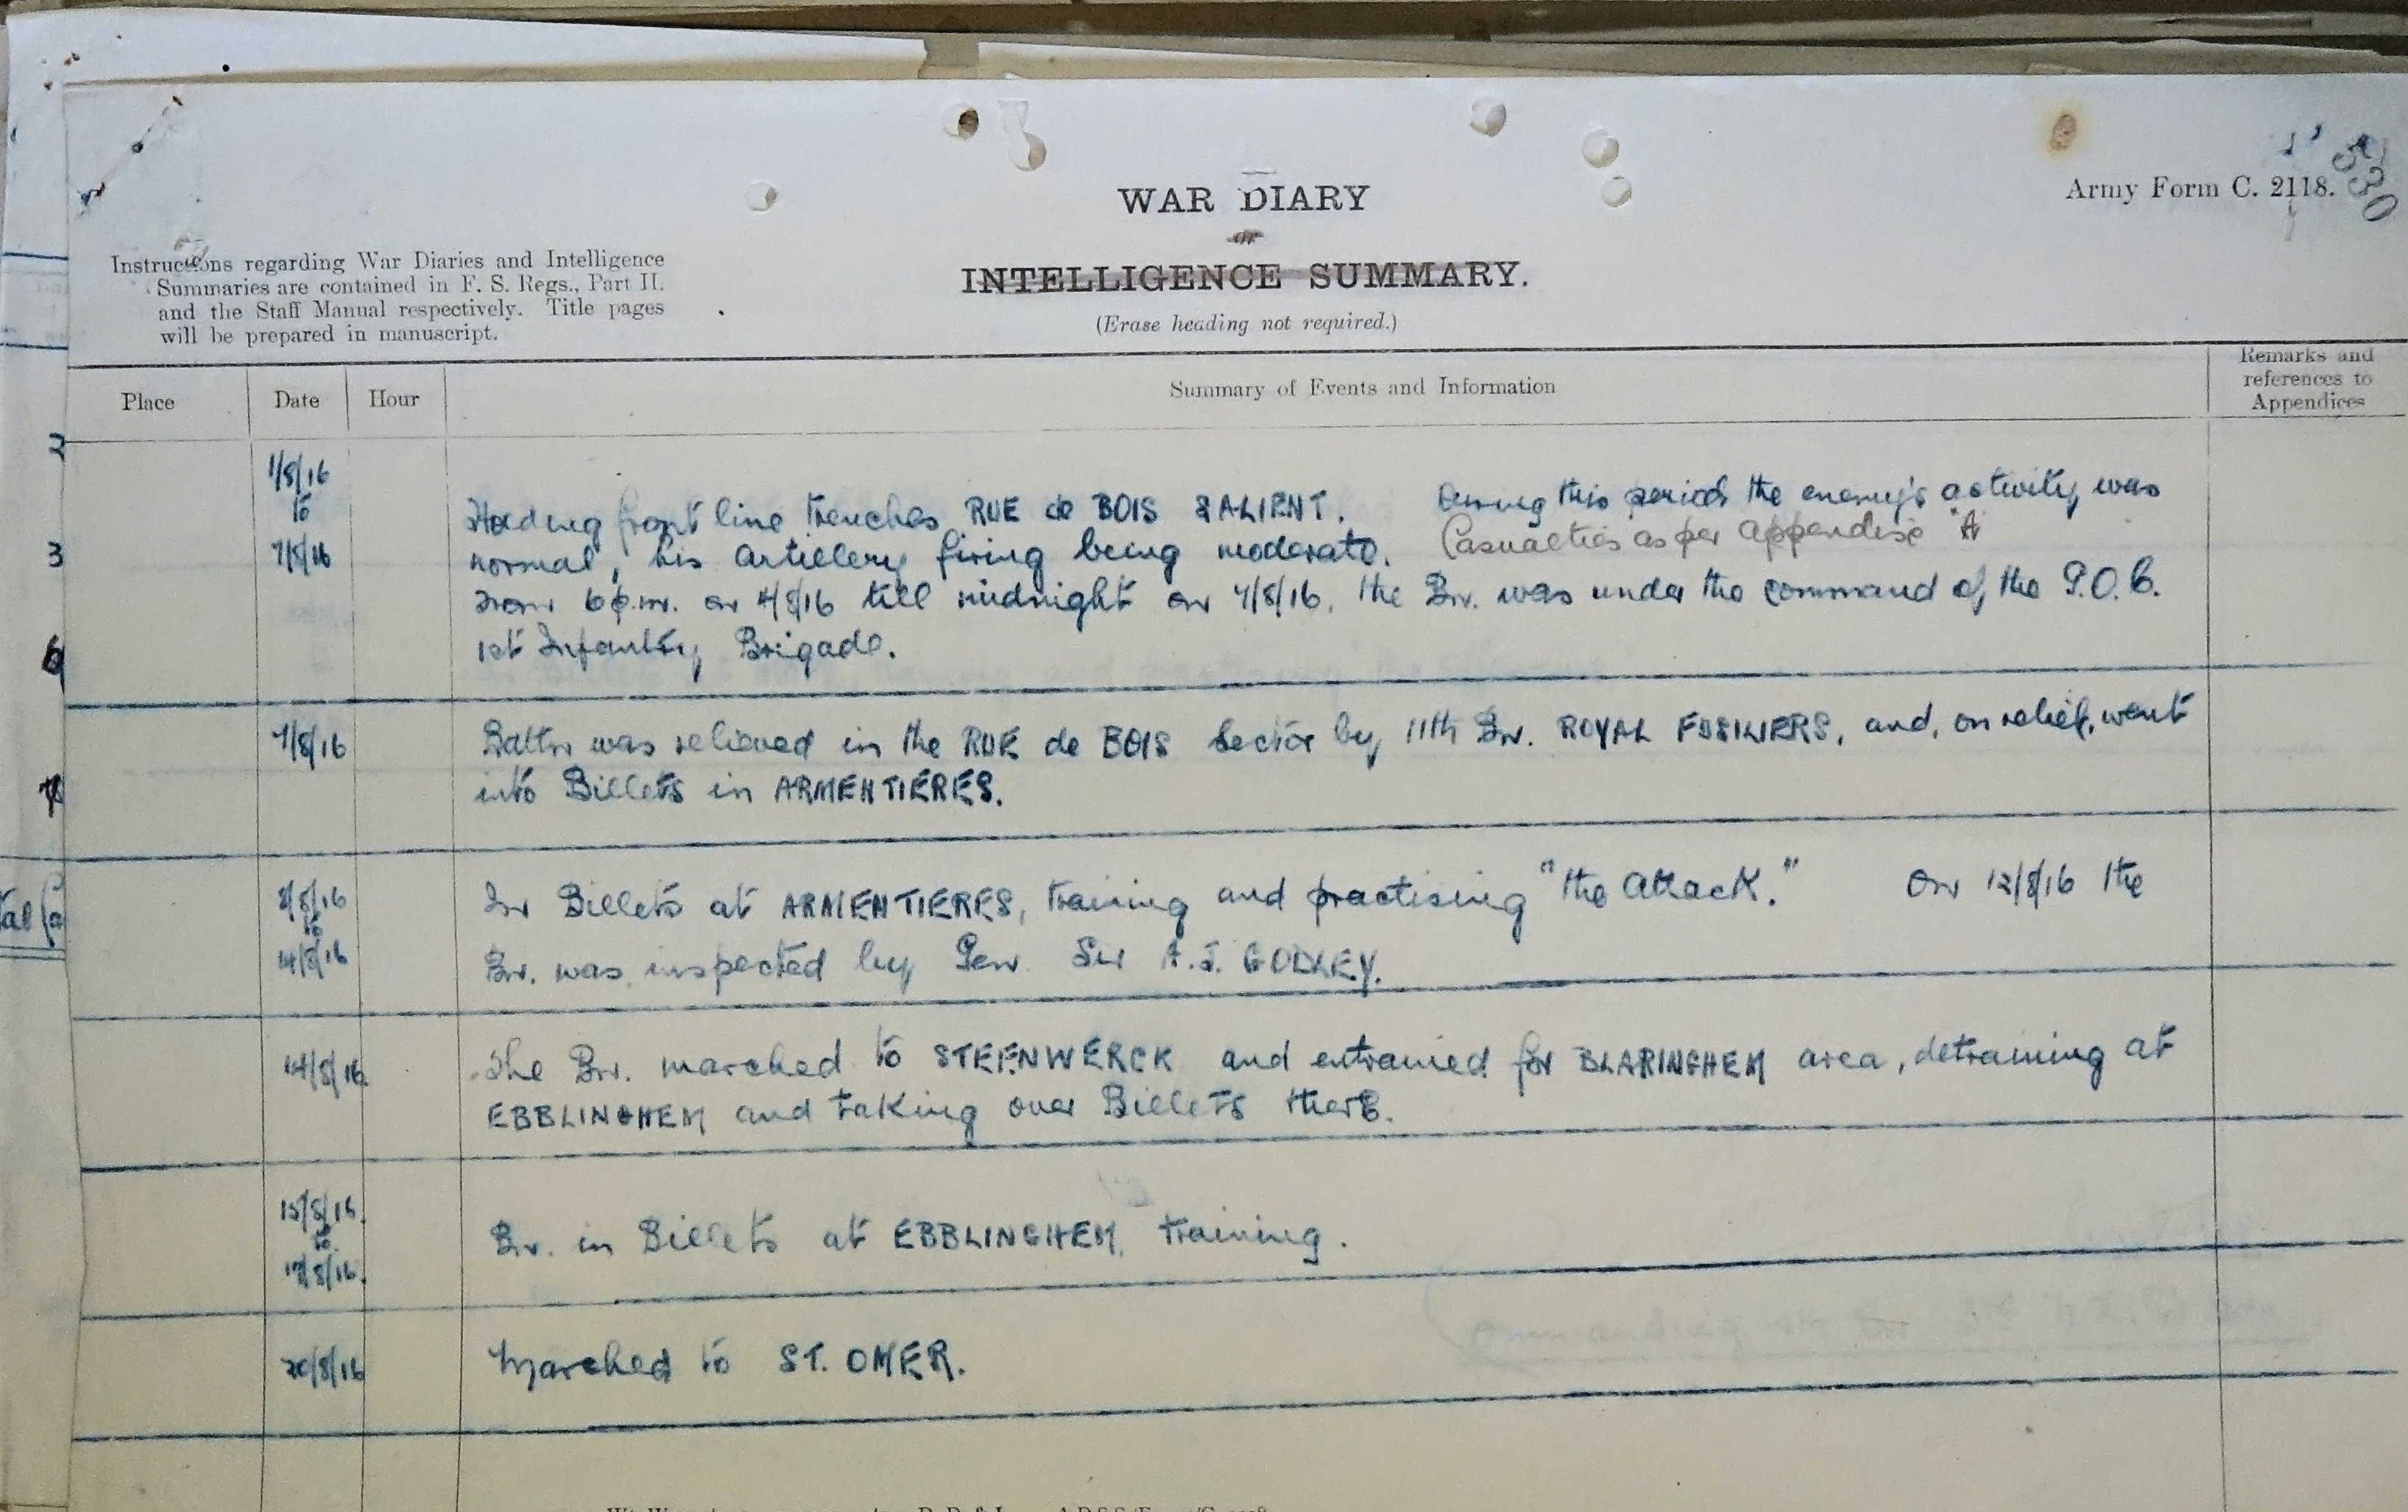 530
Army Form C. 2118.
WAR DIARY
or
INTELLIGENCE SUMMARY.
(Erase heading not required.)
Instructions regarding War Diaries and Intelligence
Summaries are contained in F. S. Regs., Part II.
and the Staff Manual respectively. Title pages
will be prepared in manuscript.
Place Date Hour Summary of Events and Information Remarks and
references to
Appendices
1/8/16
to
7/8/16
Holding front line trenches RUE de BOIS SALIENT. During this period the enemy's activity was
normal, his artillery firing being moderate. Casualties as per appendix "A"
From 6 p.m. on 4/8/16 till midnight on 7/8/16, the Bn. was under the command of the G.O.C.
1st Infantry Brigade.
7/8/16 Battn was relieved in the RUE de BOIS Sector by 11th Bn. ROYAL FUSILIERS, and, on relief, went
into Billets in ARMENTIERES.
8/8/16
to
14/8/16
In Billets at ARMENTIERES, training and practising "the Attack." On 12/8/16 the
Bn. was inspected by Gen. Sir A.J. GODLEY.
14/8/16 The Bn. marched to STEENWERCK and entrained for BLARINGHEM area, detraining at
EBBLINGHEM and taking over Billets there.
15/8/16
to
Bn. in Billets at EBBLINGHEM, training.
20/8/16 Marched to ST. OMER.